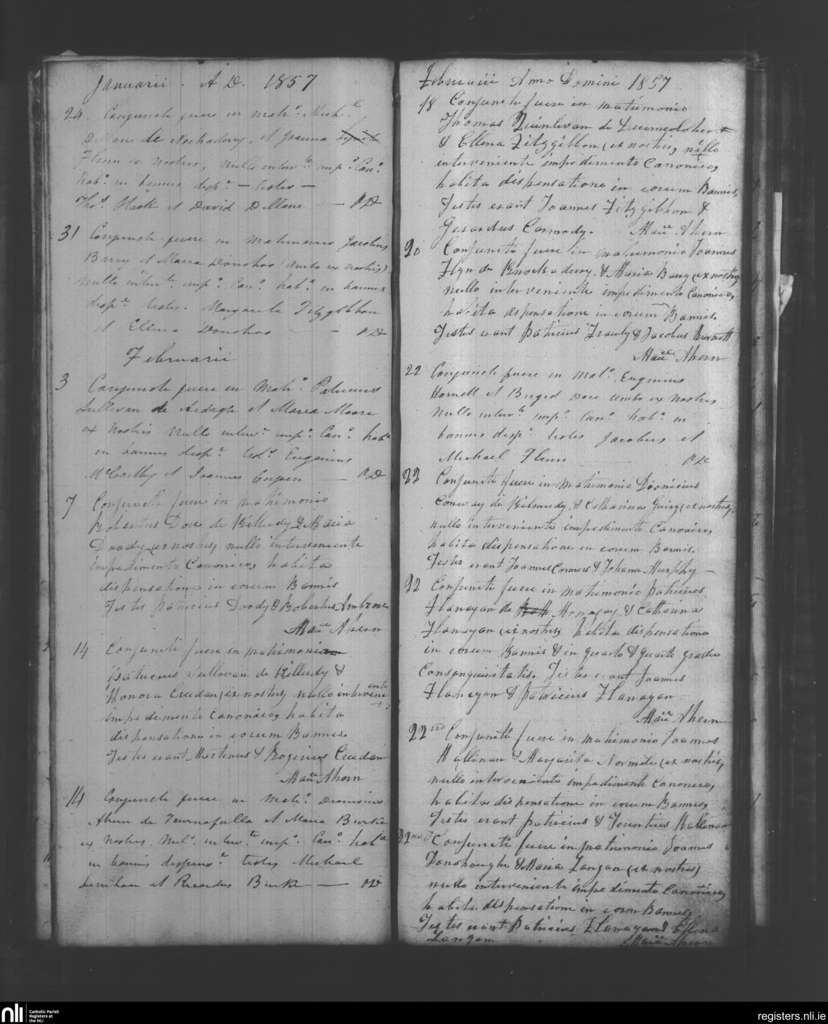 Januarii . A D. 1857
24 Conjuncti fuere in matr. Mich.
Dillane de et Joanna
Flinn ex nostris, nullo interv.te imp.o Can.o
hab.a in bannis disp.e — testes —
Tho.s Sheck et David Dillane — P.D
31 Conjuncti fuere in Matrimonio Jacobus
Barry et Maria Donohoe (ambo ex nostris)
nullo interv.te imp.o Can.o hab.a in bannis
disp.e testes. Margarita Fitzgibbon
et Ellena Donohoe — P.D
Februarii
3 Conjuncti fuere in Matr.o Patricius
Sullivan de Ardagh et Maria Moore
ex Nostris nullo interv.te imp.o Can.o hab.a
in bannis disp.e test.s Eugenius
McCarthy et Joannes — P.D
7 Conjuncti fuere in matrimonio
Robertus Dore de Killeedy & Maria
Doody, ex nostris, nullo interveniente
impedimento Canonico, habita
dispensatione in eorum Bannis
Testes Patricius Doody & Robertus Ambrose
Mau.ce Ahern
14 Conjuncti fuere in matrimonio
Patricius Sullivan de Killeedy &
Honora Creedan (ex nostris, nullo interveniente
impedimento canonico, habita
dispensatione in eorum Bannis
Testes erant Martinus & Rogerius Creedan
Mau.ce Ahern
14 Conjuncti fuere in Matr.o Dionisius
Ahern de Tournafulla et Maria Burke
ex Nostris, Nul.o interv.te imp.o Can.o hab.a
in bannis dispens.e testes Michael
Lenihan et Ricardus Burke — P.D
Februarii Anno Domini 1857
18 Conjuncti fuere in matrimonio
Thomas Quinlivan de
& Ellena Fitzgibbon (ex nostris, nullo
interveniente impedimento Canonico,
habita dispensatione in eorum Bannis,
Testes erant Joannes Fitzgibbon &
Gerardus Carmody. Mau.ce Ahern
20 Conjuncti fuere in matrimonio Joannes
Flyn de Knockaderry & Maria Bang (ex nostris,
nullo interveniente impedimento Canonico,
habita dispensatione in eorum Bannis.
Testes erant Patricius Frawly & Jacobus Burnett
Mau.ce Ahern
22 Conjuncti fuere in Mat.o Eugenius
Harnett et Brigid Dore ambo ex Nostris
Nullo interv.te imp.o Can.o hab.a in
bannis disp.e testes Jacobus et
Michael Flinn P.D
22 Conjuncti fuere in Matrimonio Dionicius
Conway de Killeedy, & Catharina Quin, (ex nostris,
nullo interveniente impedimento Canonico,
habita dispensatione in eorum Bannis.
Testes erant Joannes Connors & Johana Murphy —
22 Conjuncti fuere in Matrimonio Patricius
Flanagan de Monagay, & Catharina
Flanagan (ex nostris, habita dispensatione
in eorum Bannis & in quarto & quarto gradu
Consanguinitatis. Testes erant Joannes
Flanagan & Patricius Flanagan
Mau.ce Ahern
22nd Conjuncti fuere in matrimonio Joannes
Hallinan & Margarita Normile (ex nostris,
nullo interveniente impedimento Canonico,
habita dispensatione in eorum Bannis,
Testes erant Patricius & Hallinan
22nd Conjuncti fuere in matrimonio Joannes
Donohoughe & Maria Langan (ex nostris,
nullo interveniente impedimento Canonico,
habita dispensatione in eorum Bannis,
Testes erant Patricius Flanagan & Ellena
Langan Mau.ce Ahern
nli Catholic Parish
Registers at
the NLI
registers.nli.ie